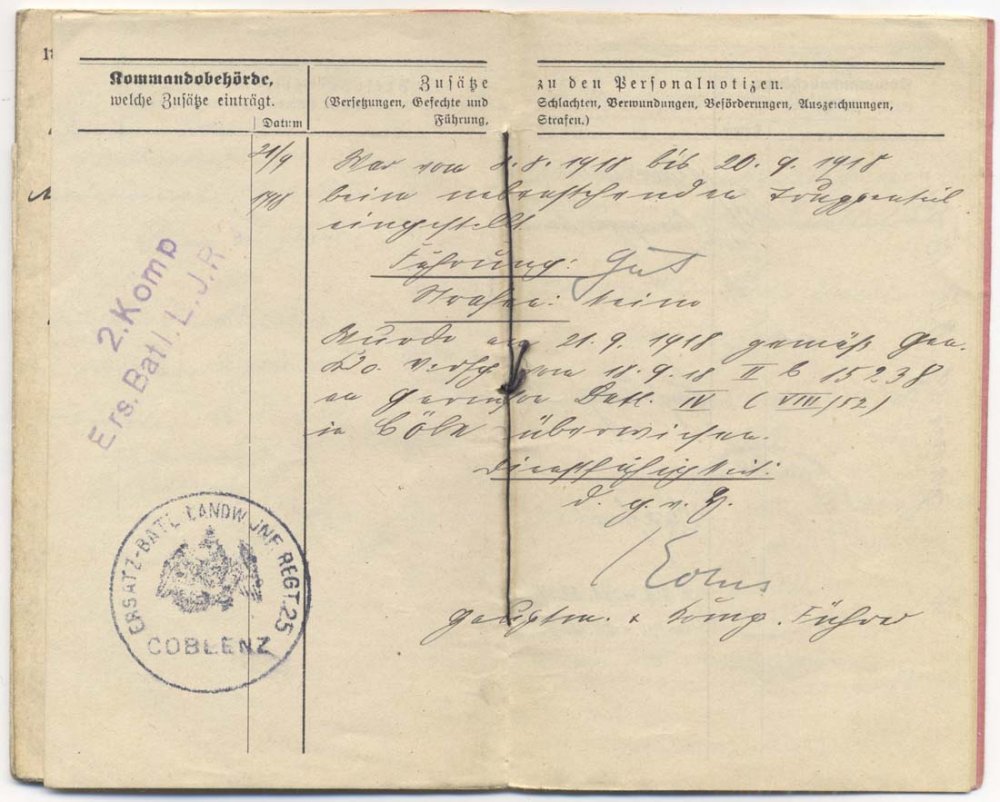 Kommandobehörde,
welche Zusätze einträgt.
Datum
Zusätze zu den Personalnotizen.
(Versetzungen, Gefechte und Schlachten, Verwundungen, Beförderungen, Auszeichnungen,
Führung, Strafen.)
21/9
1918
War vom 8.8.1918 bis 20.9.1918
beim nebenstehenden Truppenteil
eingestellt
Führung: Gut
Strafen: keine
Wurde am 21.9.1918 gemäß Gen.
Kdo. Verfg vom 18.9.18 II b 15238
an Garnison Batl. IV (VIII/52)
in Cöln überwiesen.
Dienstfähigkeit:
d. g. v. H.
Hauptm. & Komp. Führer
2. Komp
Ers. Batl. L. J. R.
ERSATZ-BATL. LANDW. INF. REGT. 25
COBLENZ